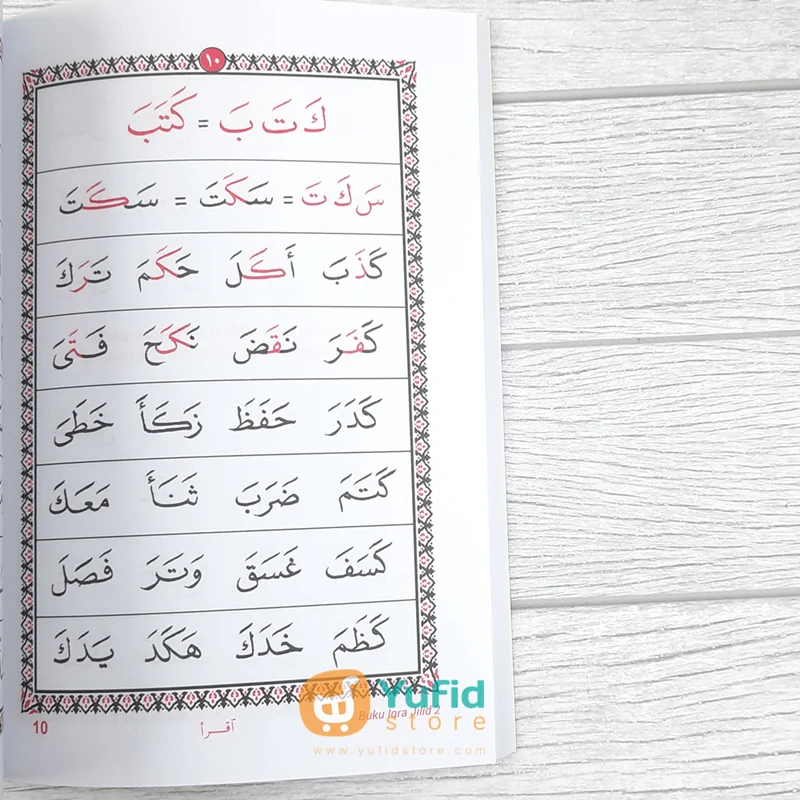 ١٠
كَ تَ بَ = كَتَبَ
سَ كَ تَ = سَكَتَ = سَكَتَ
كَذَبَ أَكَلَ حَكَمَ تَرَكَ
كَفَرَ نَقَضَ نَكَحَ فَتَىَ
كَدَرَ حَفَظَ زَكَأَ خَطَىَ
كَتَمَ ضَرَبَ ثَنَأَ مَعَكَ
كَسَفَ غَسَقَ وَتَرَ فَصَلَ
كَظَمَ خَدَكَ هَكَدَ يَدَكَ
10 اقرأ Buku Iqra Jilid 2
Yufid
store
www.yufidstore.com